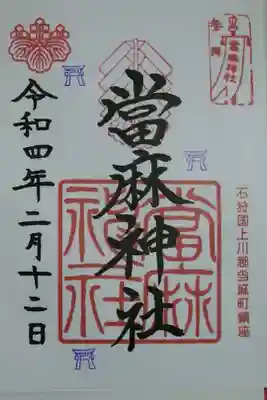 當麻神社
令和四年二月十二日
石狩国上川郡当麻町鎮座
當麻神社
當麻神社